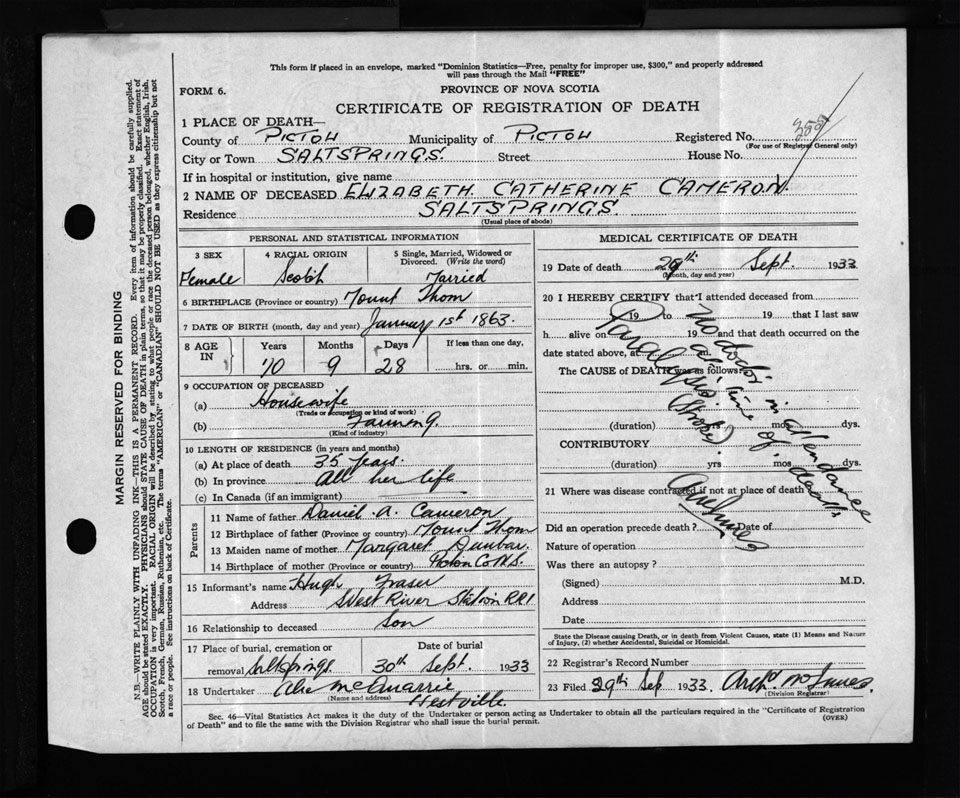 This form if placed in an envelope, marked "Dominion Statistics—Free, penalty for improper use, $300," and properly addressed
will pass through the Mail "FREE"
FORM 6.
PROVINCE OF NOVA SCOTIA
CERTIFICATE OF REGISTRATION OF DEATH
1 PLACE OF DEATH—
County of PICTOU Municipality of PICTOU Registered No.
(For use of Registrar General only)
City or Town SALTSPRINGS. Street House No.
If in hospital or institution, give name
2 NAME OF DECEASED ELIZABETH. CATHERINE CAMERON.
Residence SALTSPRINGS.
(Usual place of abode)
PERSONAL AND STATISTICAL INFORMATION
3 SEX 4 RACIAL ORIGIN 5 Single, Married, Widowed or
Divorced. (Write the word)
Female Scotch Married
6 BIRTHPLACE (Province or country) Mount Thom
7 DATE OF BIRTH (month, day and year) January 1st 1863.
8 AGE IN Years Months Days If less than one day,
70 9 28 hrs. or min.
9 OCCUPATION OF DECEASED
(a) Housewife
(Trade or occupation or kind of work)
(b) Farming.
(Kind of industry)
10 LENGTH OF RESIDENCE (in years and months)
(a) At place of death 35 years.
(b) In province all her life
(c) In Canada (if an immigrant)
Parents
11 Name of father Daniel A. Cameron
12 Birthplace of father (Province or country) Mount Thom
13 Maiden name of mother Margaret Dunbar.
14 Birthplace of mother (Province or country) Pictou Co N.S.
15 Informant's name Hugh Fraser
Address West River Station RR1
16 Relationship to deceased Son
17 Place of burial, cremation or Date of burial
removal Saltsprings. 30th Sept. 1933
18 Undertaker Abe McQuarrie
(Name and address) Westville.
MEDICAL CERTIFICATE OF DEATH
19 Date of death 29th Sept. 1933
(Month, day and year)
20 I HEREBY CERTIFY that I attended deceased from
19 to 19 that I last saw
h alive on 19 and that death occurred on the
date stated above, at m.
The CAUSE of DEATH was as follows:
Paralysis
(Stroke)
No doctor in attendance
at time of death
(duration) yrs mos dys.
CONTRIBUTORY
(duration) yrs mos dys.
21 Where was disease contracted if not at place of death
Did an operation precede death? Date of
Nature of operation
Was there an autopsy?
(Signed) M.D.
Address
Date
State the Disease causing Death, or in death from Violent Causes, state (1) Means and Nature
of Injury, (2) whether Accidental, Suicidal or Homicidal.
22 Registrar's Record Number
23 Filed 29th Sep 1933. Archd McInnes.
(Division Registrar)
Sec. 46—Vital Statistics Act makes it the duty of the Undertaker or person acting as Undertaker to obtain all the particulars required in the "Certificate of Registration
of Death" and to file the same with the Division Registrar who shall issue the burial permit.
(OVER)
MARGIN RESERVED FOR BINDING
N.B.—WRITE PLAINLY WITH UNFADING INK—THIS IS A PERMANENT RECORD. Every item of information should be carefully supplied.
AGE should be stated EXACTLY. PHYSICIANS should STATE CAUSE OF DEATH in plain terms, so that it may be properly classified. Exact statement of
OCCUPATION is very important. RACIAL ORIGIN will be described by stating to what people or race the deceased person belonged, whether English, Irish,
Scotch, French, German, Russian, Ruthenian, etc. The terms "AMERICAN" or "CANADIAN" SHOULD NOT BE USED as they express citizenship but not
a race or people. See instructions on back of Certificate.